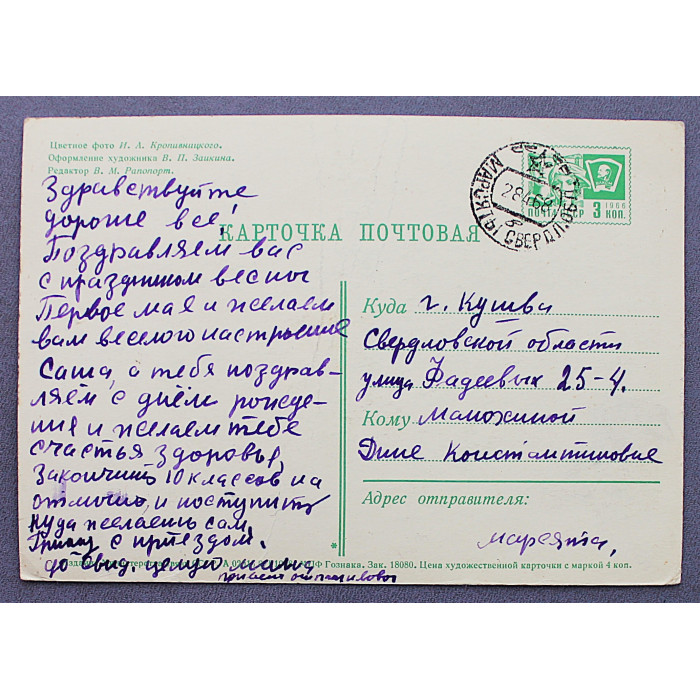 Цветное фото И. А. Кропивницкого.
Оформление художника В. П. Заикина.
Редактор В. М. Рапопорт.
Здравствуйте
дорогие все!
Поздравляем вас
с праздником весны
Первое мая и желаем
вам веселого настроение
Саша, а тебя поздрав-
ляем с днём рожде-
ния и желаем тебе
счастья здоровья,
Закончить 10 классов на
отлично, и поступить
куда желаешь сам,
с приездом.
до свид. целую
КАРТОЧКА ПОЧТОВАЯ
МАРСЯТЫ СВЕРДЛ.
28 4 68
ПОЧТА СССР 1966
3 КОП.
Куда г. Кушва
Свердловской области
улица Фадеевых 25-4.
Кому Маножиной
Дине Константиновне
Адрес отправителя:
марсяты,
Гознака. Зак. 18080. Цена художественной карточки с маркой 4 коп.